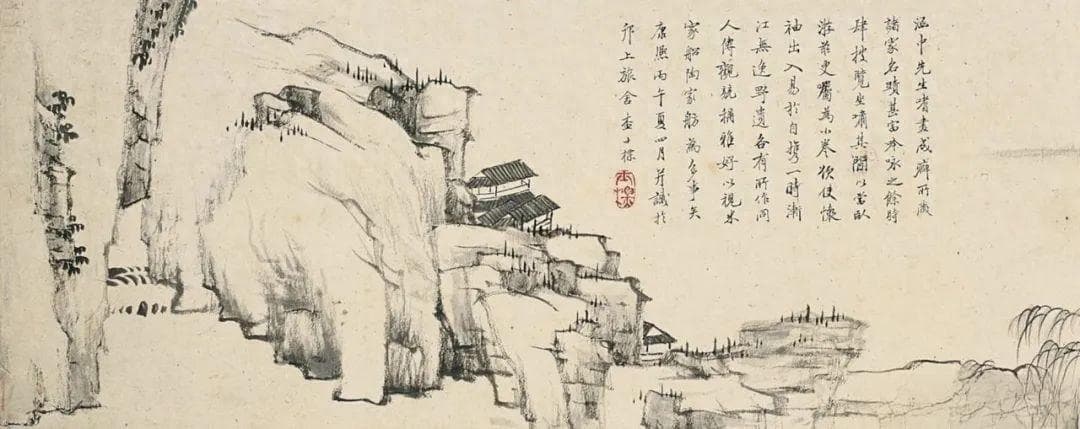 涵中先生嗜畫成癖所藏
諸家名蹟甚富吟咏之餘時
肆披覽坐其間以當臥
遊茲更屬為小卷欲使懷
袖出入易於自携一時漸
江無逸野遺各有所作同
人傳觀競稱雅好以視米
家船陶家舫為多事矣
康熙丙午夏四月并識於
邗上旅舍查士標
士標